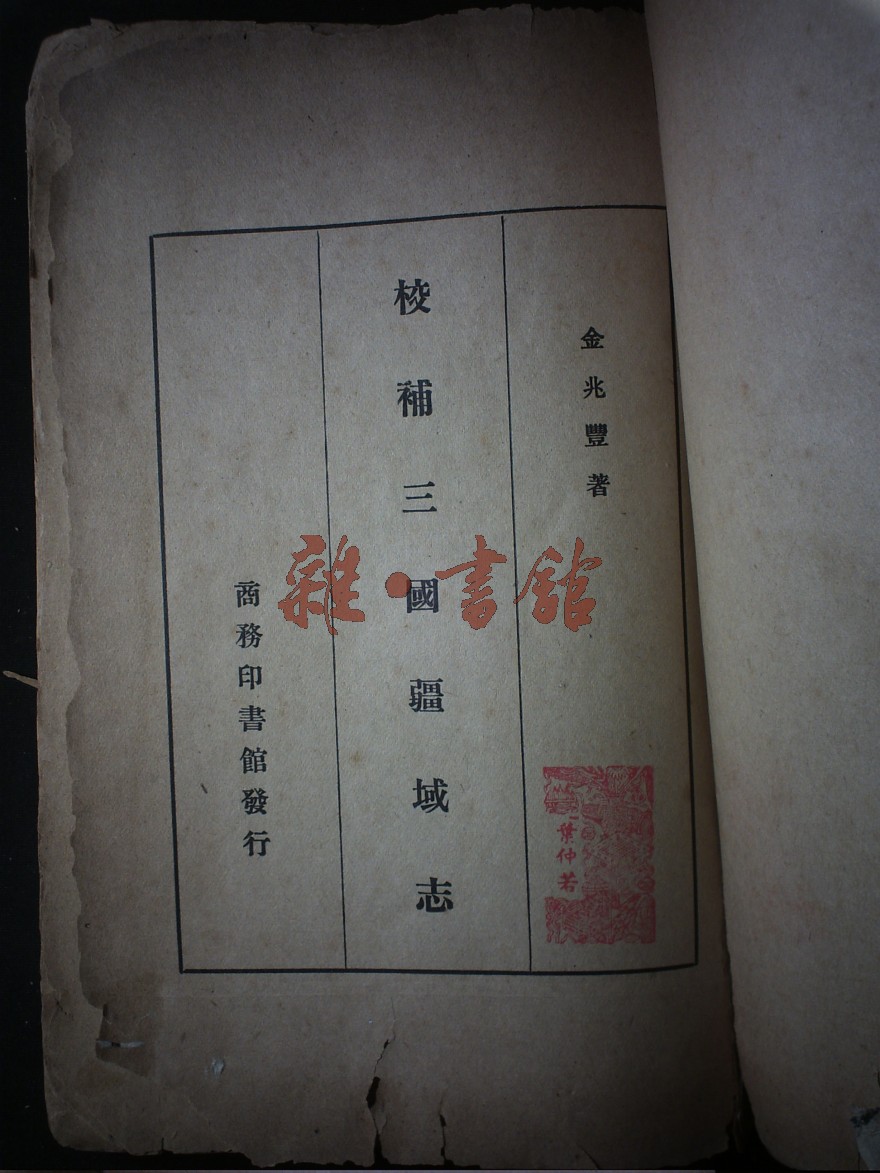 金兆豐著
校補三國疆域志
商務印書館發行
葉仲若
雜·書館